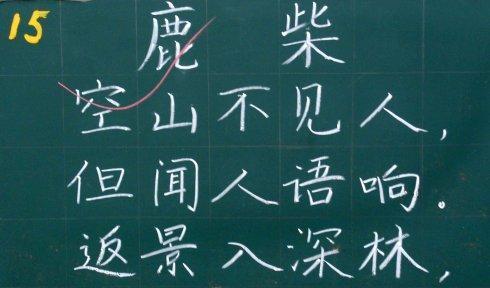 15
鹿柴
空山不见人,
但闻人语响。
返景入深林,